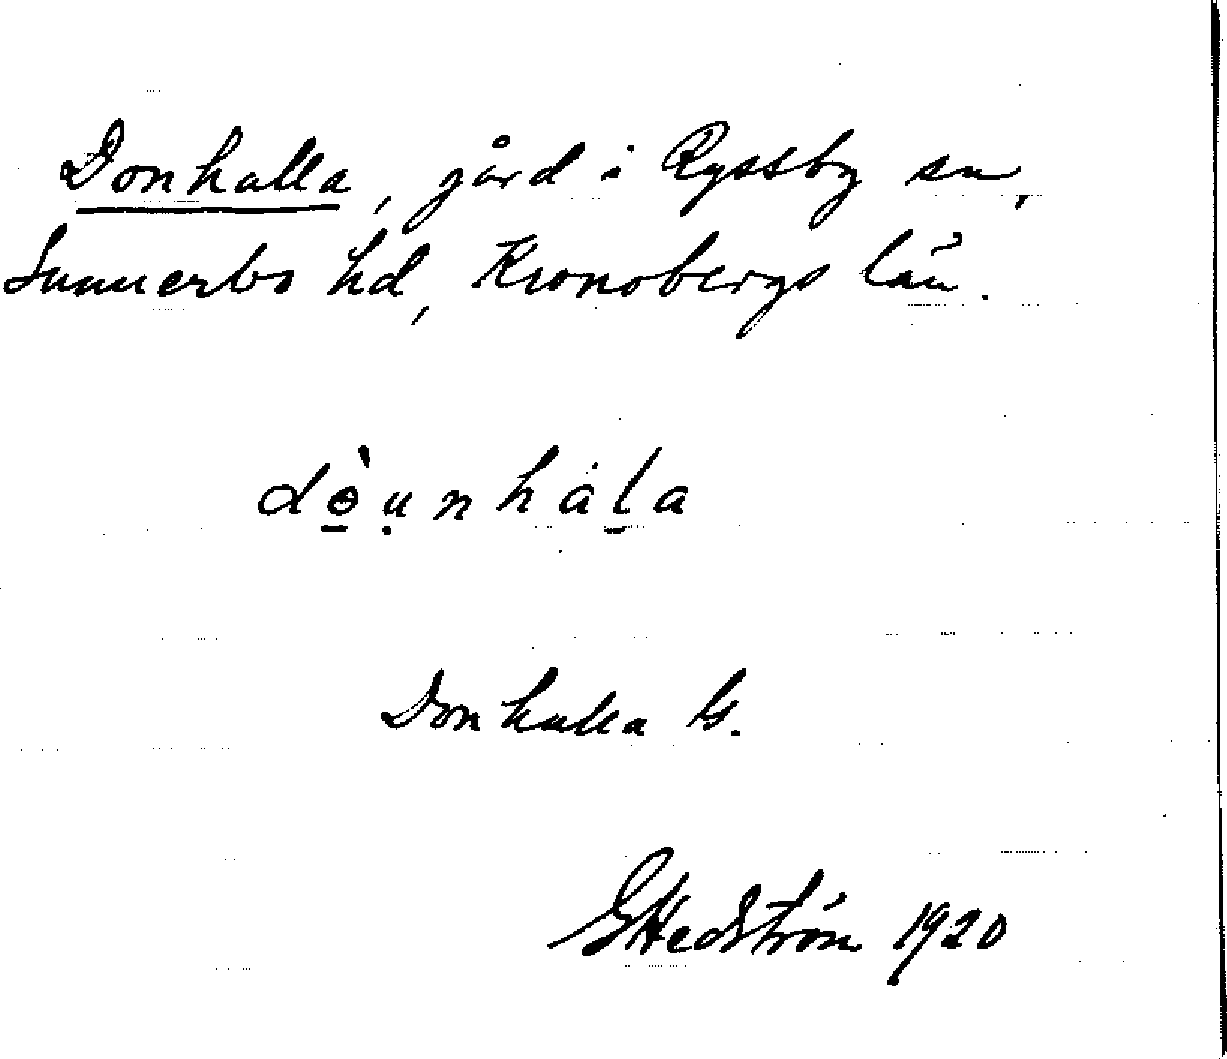 Donhalla, gård i Ryssby sn,
Sunnerbo hd, Kronobergs län.
dò̱ụnhàḻa
Donhalla G.
G Hedström 1920